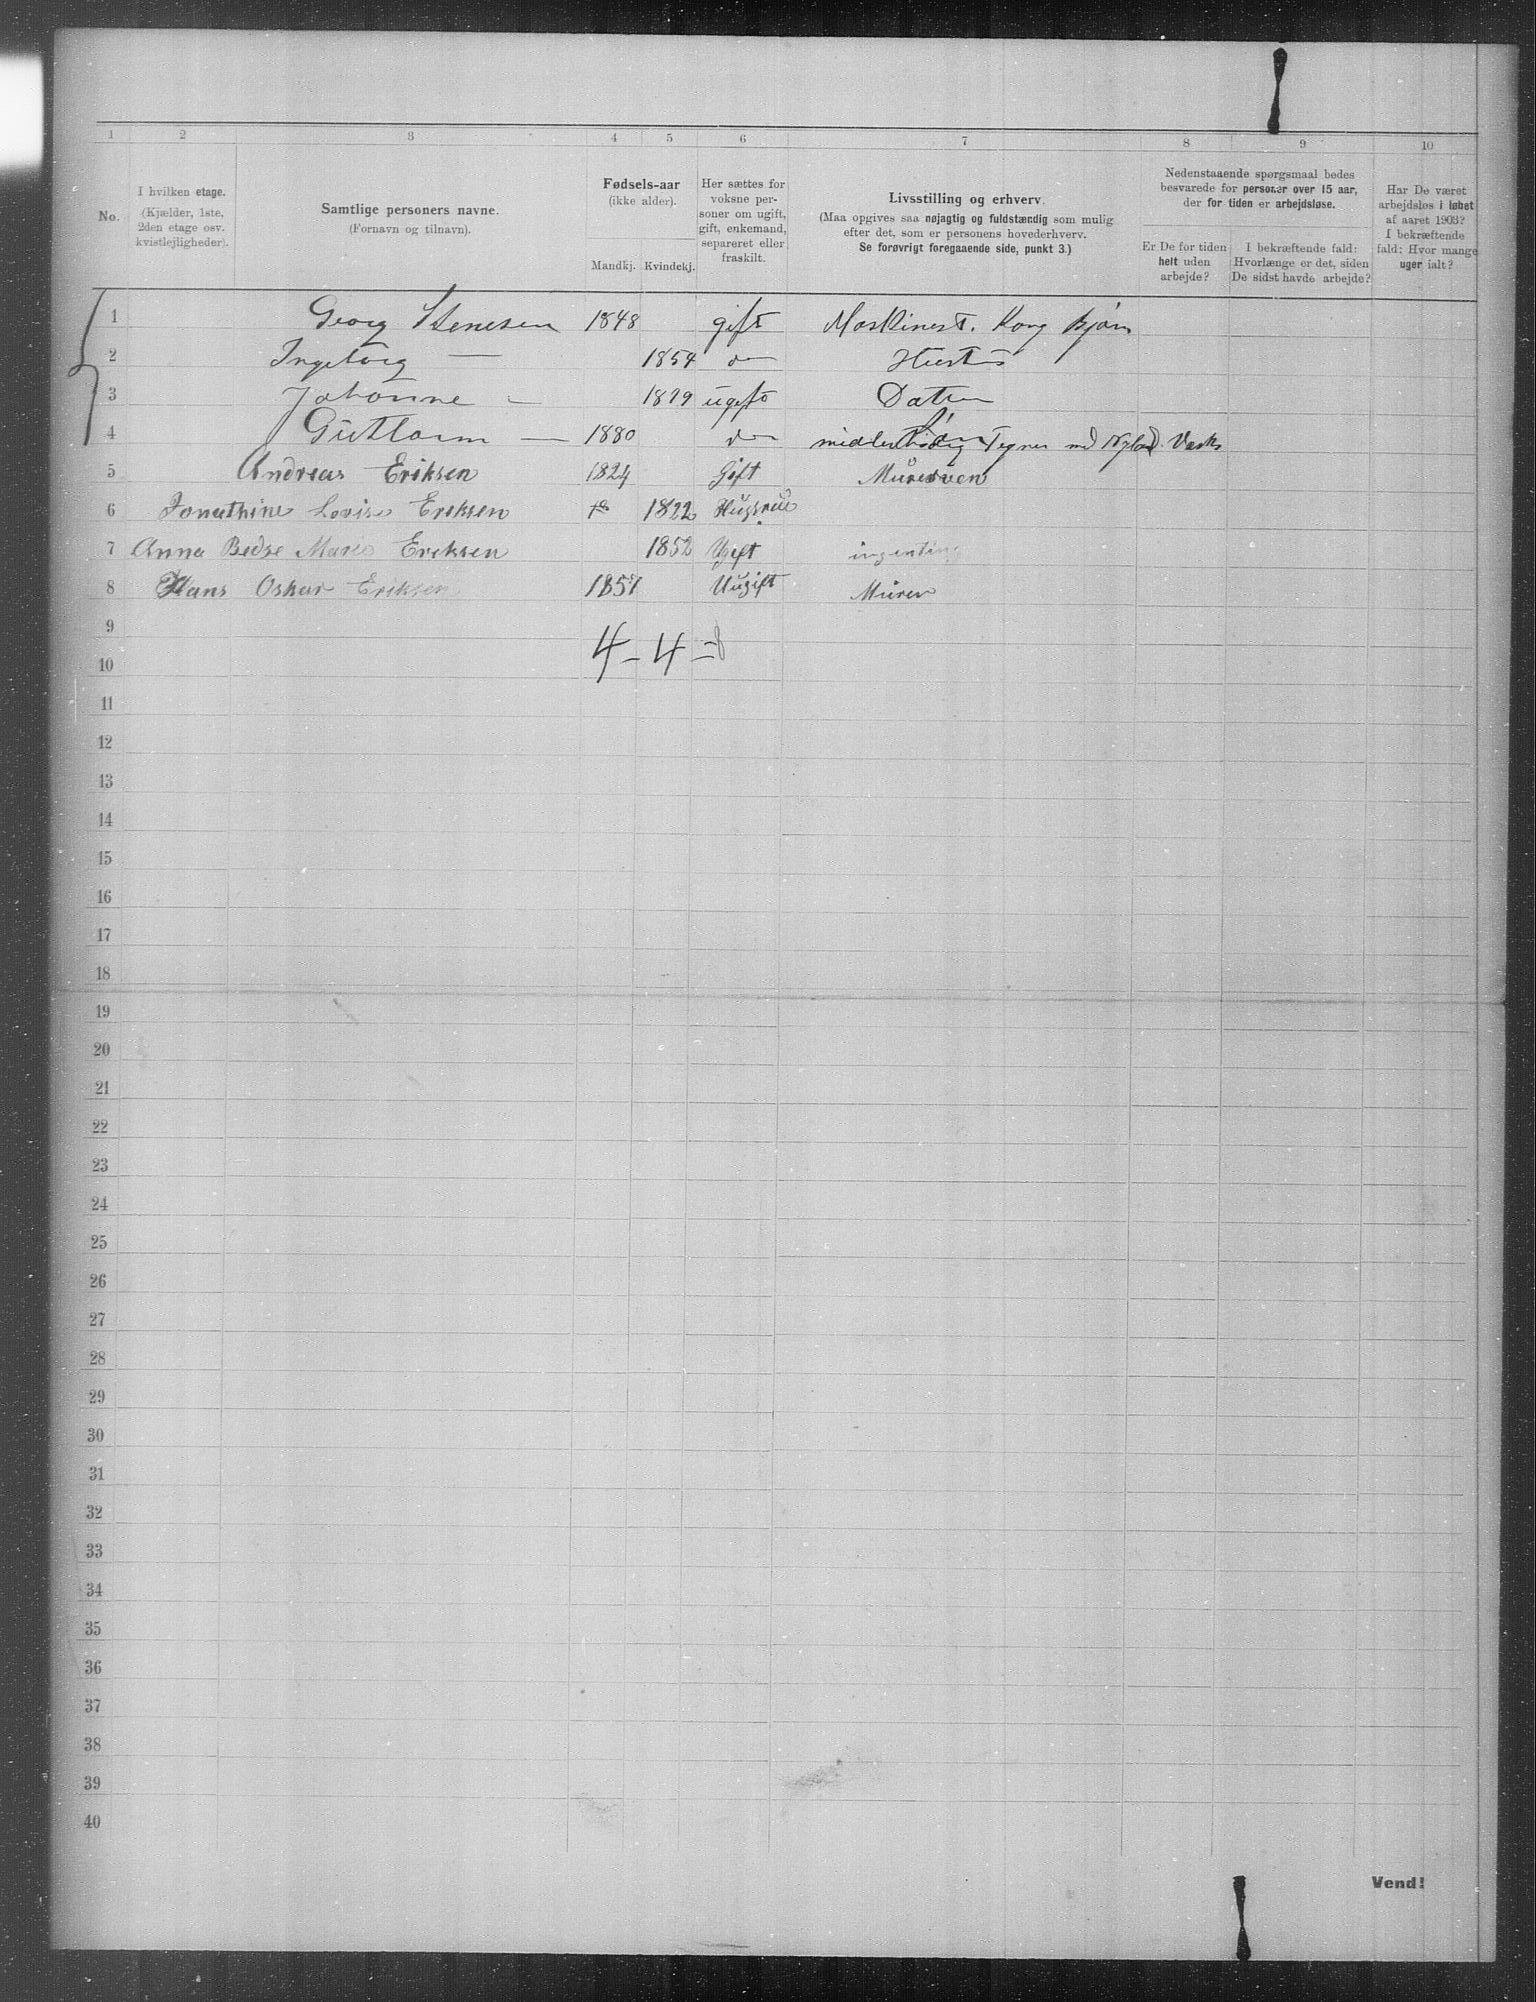 1 2 3 4 5 6 7 8 9 10
No.
I hvilken etage.
(Kjælder, 1ste,
2den etage osv.
kvistlejligheder).
Samtlige personers navne.
(Fornavn og tilnavn).
Fødsels-aar
(ikke alder).
Mandkj. Kvindekj.
Her sættes for
voksne per-
soner om ugift,
gift, enkemand,
separeret eller
fraskilt.
Livsstilling og erhverv.
(Maa opgives saa nøjagtig og fuldstændig som mulig
efter det, som er personens hovederhverv.
Se forøvrigt foregaaende side, punkt 3.)
Nedenstaaende spørgsmaal bedes
besvarede for personer over 15 aar,
der for tiden er arbejdsløse.
Er De for tiden
helt uden
arbejde?
I bekræftende fald:
Hvorlænge er det, siden
De sidst havde arbejde?
Har De været
arbejdsløs i løbet
af aaret 1903?
I bekræftende
fald: Hvor mange
uger ialt?
1 Georg Stenesen 1848 gift Maskinest. Kong Bjørn
2 Ingeborg — 1854 do
3 Johanne — 1879 ugift Datter
4 Guttorm — 1880 do Søn midlertidig Tegner ved Nylands Værks
5 Andreas Eriksen 1824 Gift Muresven
6 Jonathine Lovise Eriksen 1822 Husfrue
7 Anna Bedse Marie Eriksen 1852 Ugift ingenting
8 Hans Oskar Eriksen 1857 Uugift Murer
9
4 - 4 = 8
10
11
12
13
14
15
16
17
18
19
20
21
22
23
24
25
26
27
28
29
30
31
32
33
34
35
36
37
38
39
40
Vend!